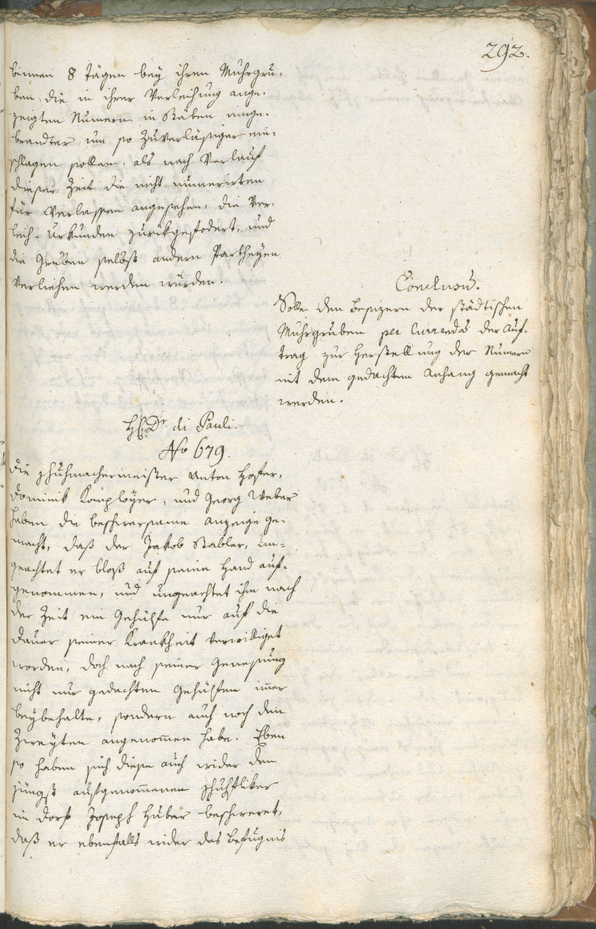 292.
binnen 8 Tägen bey ihren Muhrgru-
ben die in ihrer Verleihung ange-
zeigten Numern in Stäben einge-
brandter um so zuverlässiger ein-
schlagen sollen, als nach Verlauf
dieser Zeit die nicht numerirten
für Verlassen angesehen, die Ver-
leih-Urkunden zurückgefodert, und
die Gruben selbst andern Partheyen
verliehen werden würden.
Conclusum.
Solle den Besizern der städtischen
Muhrgruben per Currenda der Auf-
trag zur Herstellung der Numern
mit dem gedachten Anhang gemacht
werden.
H. Dr. di Pauli.
No 679.
Die Schuhmachermeister Anton Hofer,
Dominik, und Georg Weber
haben die beschwersame Anzeige ge-
macht, daß der Jakob Stabler, un-
geachtet er bloß auf seine Hand auf-
genommen, und ungeachtet ihm nach
der Zeit ein Gehülfe nur auf die
Dauer seiner Krankheit verwilliget
worden, doch nach seiner Genesung
nicht nur gedachten Gehülfen immer
beybehalte, sondern auch noch den
Zweyten angenommen habe. Eben
so haben sich diese auch wider den
jüngst aufgenommenen Schuhfliker
im Dorf Joseph Huber beschweret,
daß er ebenfalls wider das Befugnis